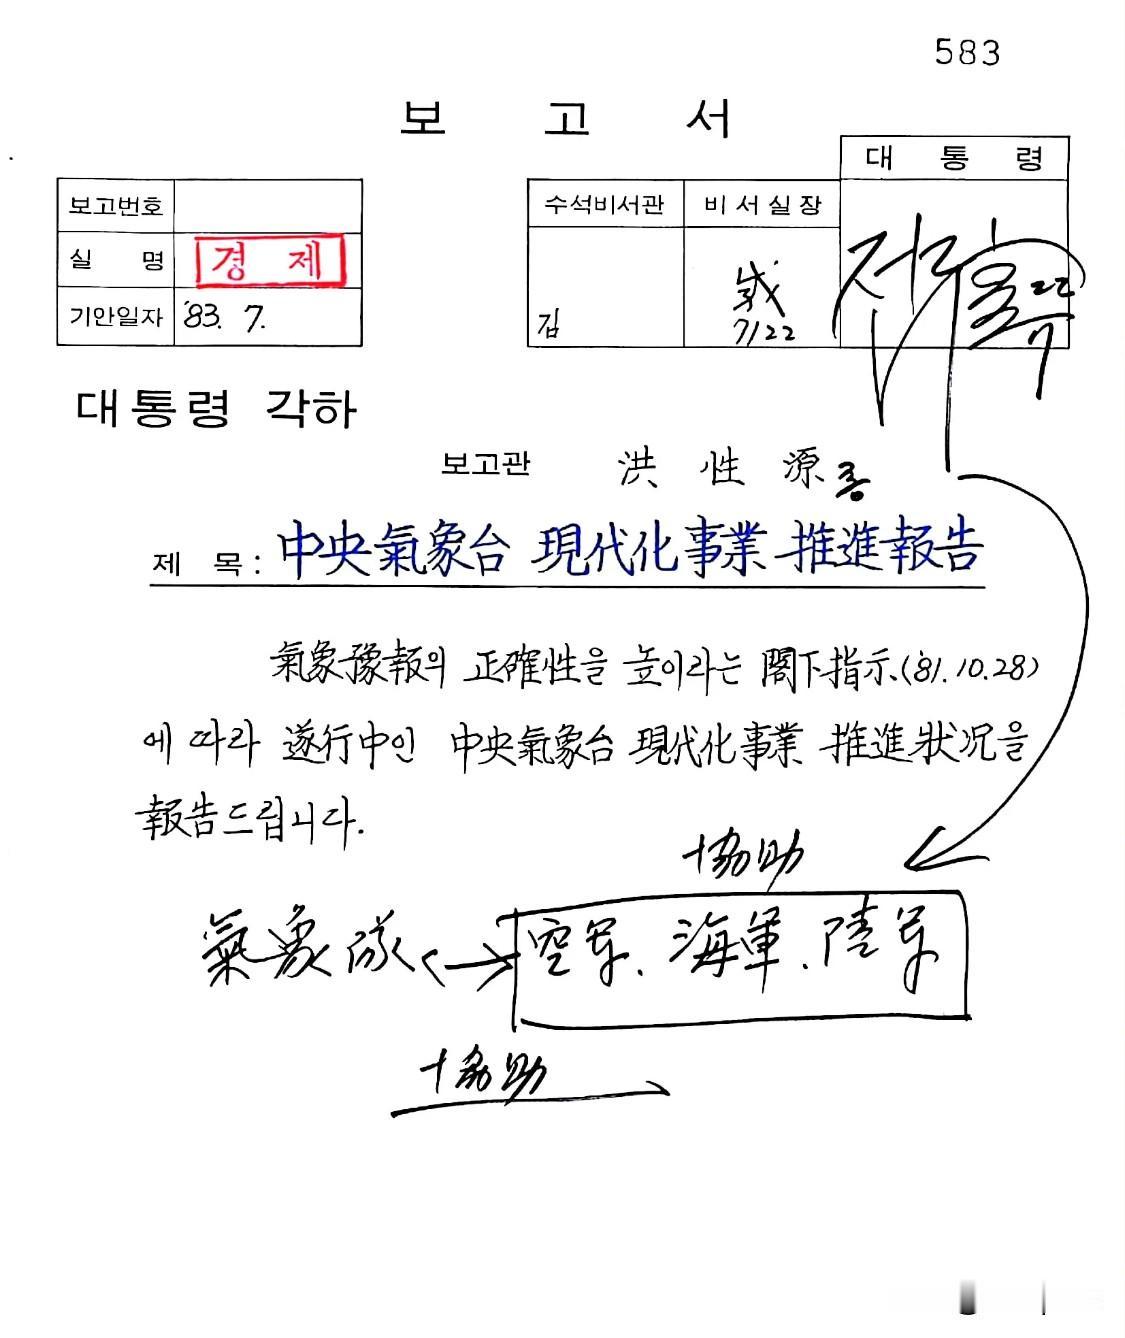 583
보 고 서
보고번호
실 명 경 제
기안일자 '83. 7.
수석비서관 비서실장 대 통 령
김
7/22
대통령 각하
보고관 洪 性 源
제 목: 中央氣象台 現代化事業 推進報告
氣象豫報의 正確性을 높이라는 閣下指示('81.10.28)
에 따라 遂行中인 中央氣象台 現代化事業 推進狀況을
報告드립니다.
協助
氣象隊 ↔ 空军、海軍、陸军
協助